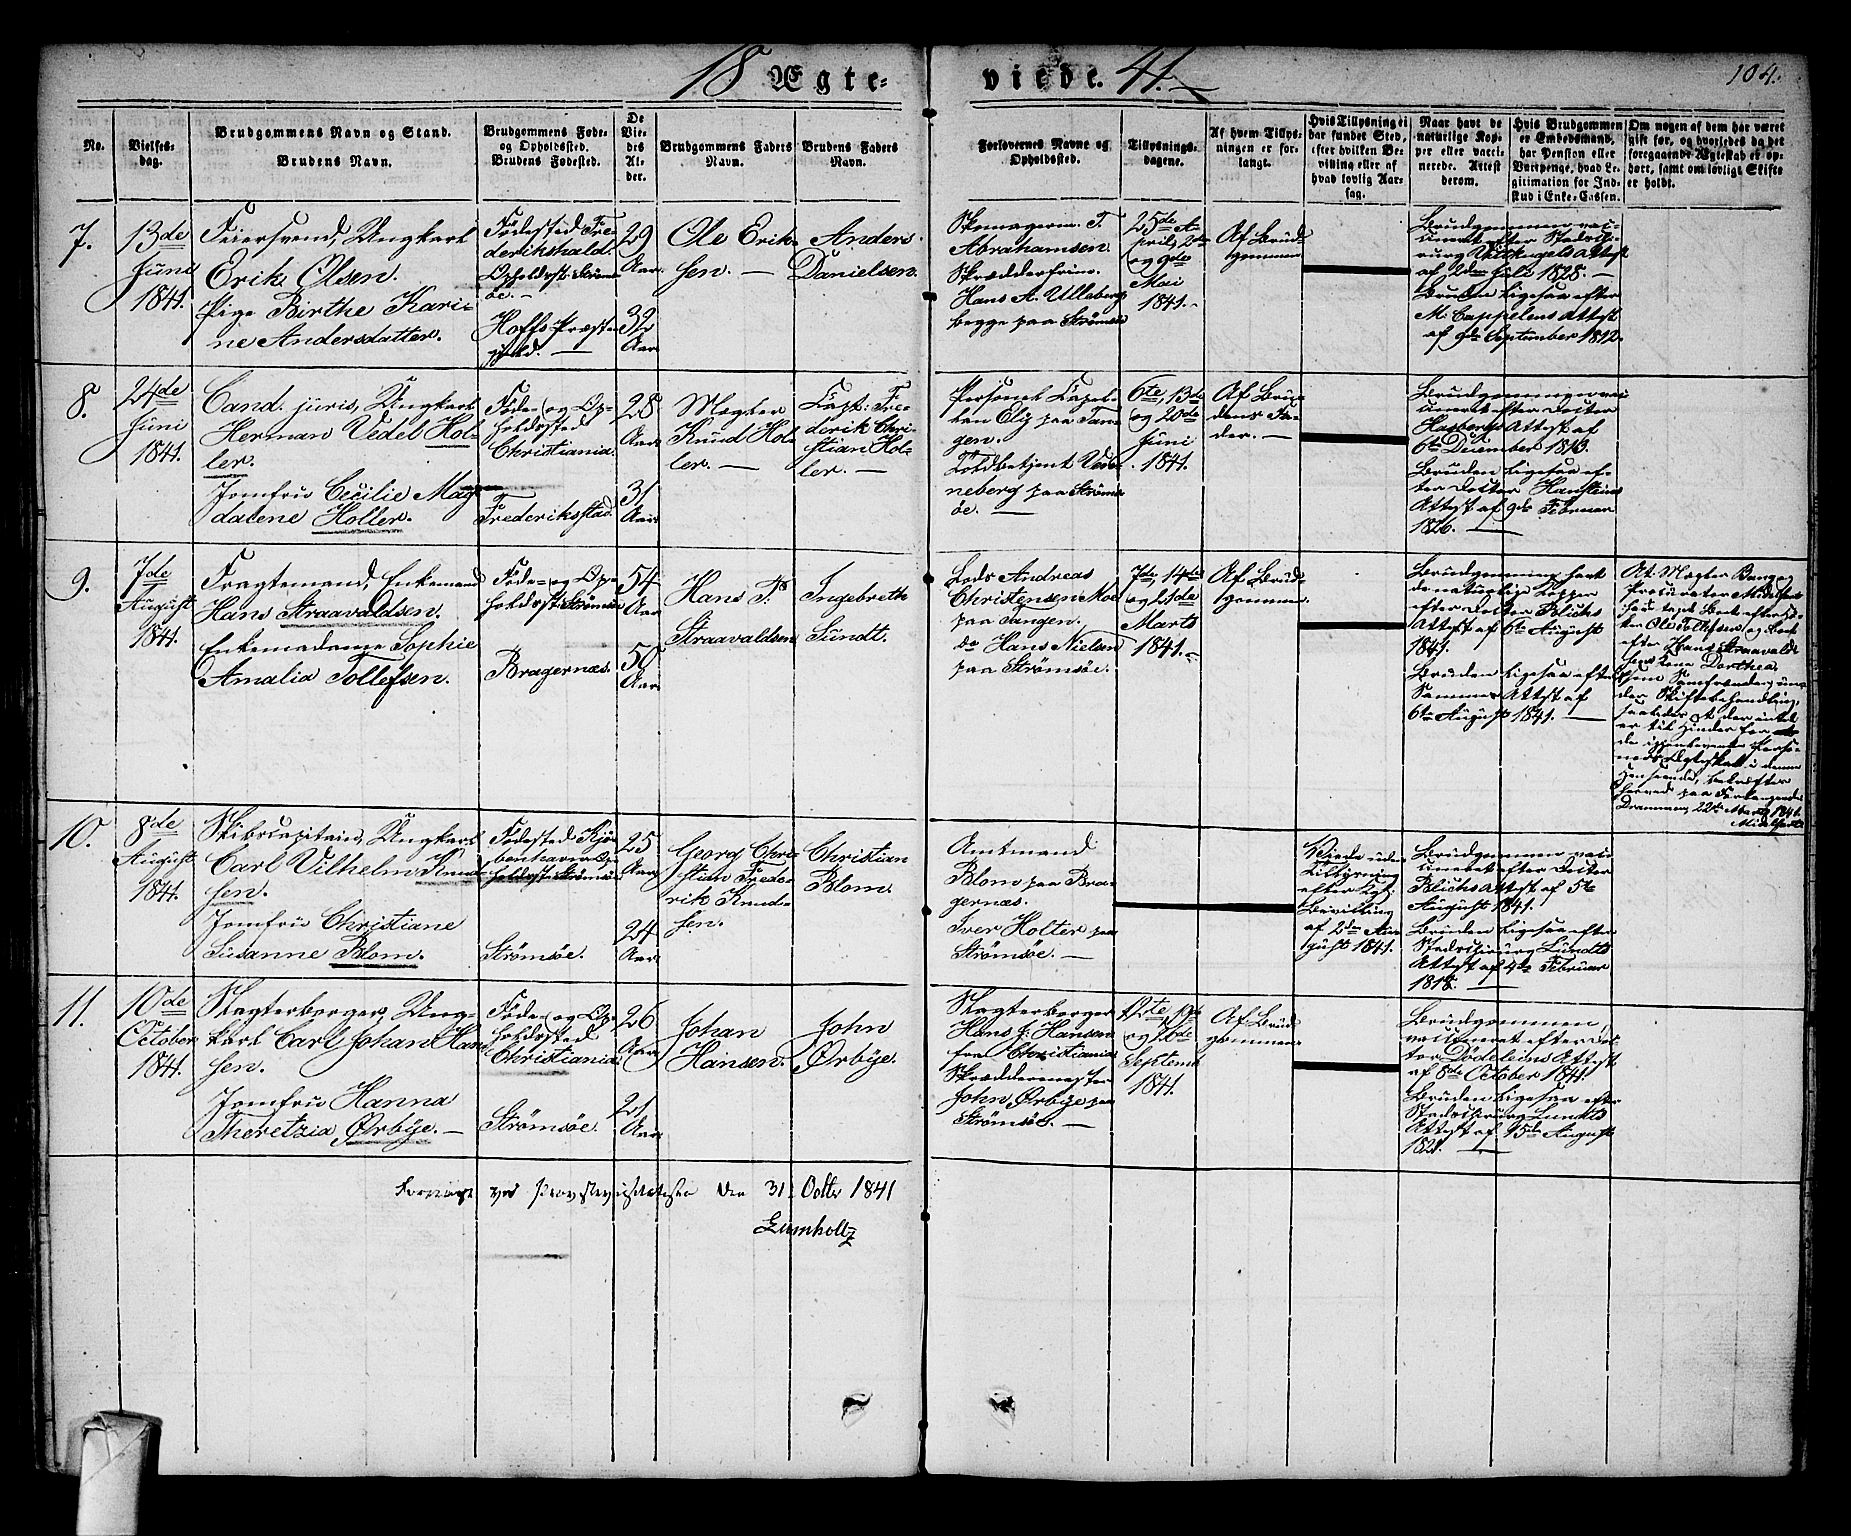 18 Ægte-
viede. 41.
104.
No.
Vielses-
dag.
Brudgommens Navn og Stand.
Brudens Navn.
Brudgommens Føde-
og Opholdssted.
Brudens Fødested.
De
Vie-
des
Al-
der.
Brudgommens Faders
Navn.
Brudens Faders
Navn.
Forlovernes Navne og
Opholdssted.
Tillysnings-
dagene.
Af hvem Tillys-
ningen er for-
langt.
Hvis Tillysning ei
har fundet Sted,
efter hvilken Be-
villing eller af
hvad lovlig Aar-
sag.
Naar havt de
naturlige Kop-
per eller vacci-
nerede. Attest
derom.
Hvis Brudgommen
er Embedsmand,
har Pension eller
Vartpenge, hvad Le-
gitimation for Ind-
skud i Enke-Cassen.
Om nogen af dem har været
gift før, og hvorledes og det
foregaaende Ægteskab er op-
hørt, samt om lovligt Skifte
er holdt.
7.
13de
Juni
1841.
Feiersvend, Ungkarl
Erik Olsen.
Pige Birthe Kari-
ne Andersdatter.
Fødested Fre-
derikshald.
Opholdsst. Strøms-
øe. —
Hoffs Præste-
gjeld. —
29
Aar.
39
Aar
Ole Erik-
sen. —
Anders
Danielsen.
Skomagerm. T.
Abrahamsen.
Skrædderfrim.
Hans A. Ulleberg
begge paa Strømsøe
25de A-
pril, 2de
og 9de
Mai
1841. -
Af Brud-
gommen
Brudgommen vac-
cineret efter Stedschi-
rurg Attest
af 2den Juli 1828. —
Bruden ligesaa efter
M. Cappelens Attest
af 9de September 1812.
8.
24de
Juni
1841.
Cand. juris, Ungkarl
Herman Vedel Hol-
ler.
Jomfru Cecilie Mag-
dalene Holler.
Føde- og Op-
holdssted
Christiania.
Frederiksstad.
28
Aar.
31
Aar
Mægler
Knud Hol-
ler. —
Capt: Fre-
derik Chri-
stian Hol-
ler. —
Personel Capel-
lan Elig paa Tan-
gen.
Toldbetjent Von-
neberg paa Strøms-
øe. —
6te, 13de
og 20de
Juni
1841.
Af Bru-
dens Fa-
der. —
Brudgommen vac-
cineret efter Doctor
Hasbergs Attest af
6te December 1813.
Bruden ligesaa ef-
ter Doctor Hansteins
Attest af 9de Februar
1826. —
9.
7de
August
1841.
Fragtemand, Enkemand
Hans Straavaldsen.
Enkemadame Sophie
Amalia Tollefsen.
Føde- og Op-
holdsst. Strømsøe
Bragernæs.
54
Aar
50
Aar
Hans Ts
Straavaldsen
Ingebreth
Sundt.
Lods Andreas
Christensen Moe
paa Tangen.
do Hans Nielsen
paa Strømsøe.
7de, 14de
og 21de
Marts
1841. -
Af Brud-
gommen
Brudgommen havt
de naturlige Kopper
efter Doctor Blichs
Attest af 6te August
1841.
Bruden ligesaa efter
Sammes Attest af
6te August 1841. —
At Mægler Bang,
Procurator
efter
Ole Tollefsen, og Boet
efter Hans Straavald-
sens Kone Dorthea
ere
der Skiftebehandling,
saaledes at der intet
er til Hinder for
Ægteskab i denne
Henseende, bekræftes
herved paa Forlangende
Drammen, 22de Marts 1841.
10.
8de
August
1841.
Skibscapitain, Ungkarl
Carl Vilhelm Knud-
sen.
Jomfru Christiane
Susanne Blom.
Fødested Kjø-
benhavn Op-
holdsst. Strømsøe
Strømsøe.
25
Aar
24
Aar
Georg Chri-
stian Frede-
rik Knud-
sen.
Christian
Blom.
Amtmand
Blom paa Bra-
gernæs.
Iver Holter paa
Strømsøe. —
Viede uden
Tillysning
efter Kgl:
Bevilling
af 2den Au-
gust 1841.
Brudgommen vac-
cineret efter Doctor
Blichs Attest af 5te
August 1841.
Bruden ligesaa efter
Stedschirurg Lundts
Attest af 4de Februar
1818. —
11.
10de
October
1841.
Slagterborger, Ung-
karl Carl Johan Han-
sen.
Jomfru Hanna
Theretzia Ørbye. —
Føde- og Op-
holdssted
Christiania
Strømsøe.
26
Aar
21
Aar
Johan
Hansen.
John
Ørbye.
Slagterborger
Hans J. Hansen
fra Christiania
Skræddermester
John Ørbye paa
Strømsøe. —
12te, 19de
og 26de
Septemb
1841.
Af Brud-
gommen
Brudgommen,
vaccineret efter Doc-
tor Dødeleins Attest
af 8de October 1841.
Bruden ligesaa efter
Stedschirurg Lundts
Attest af 15de August
1821. —
Foreviist ved Provstevisitatsen den 31 Octbr 1841
Lumholtz